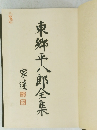 東郷平八郎全集